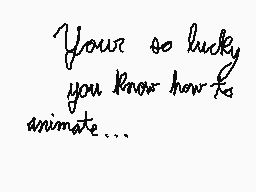 Your so lucky
you know how to
animate...